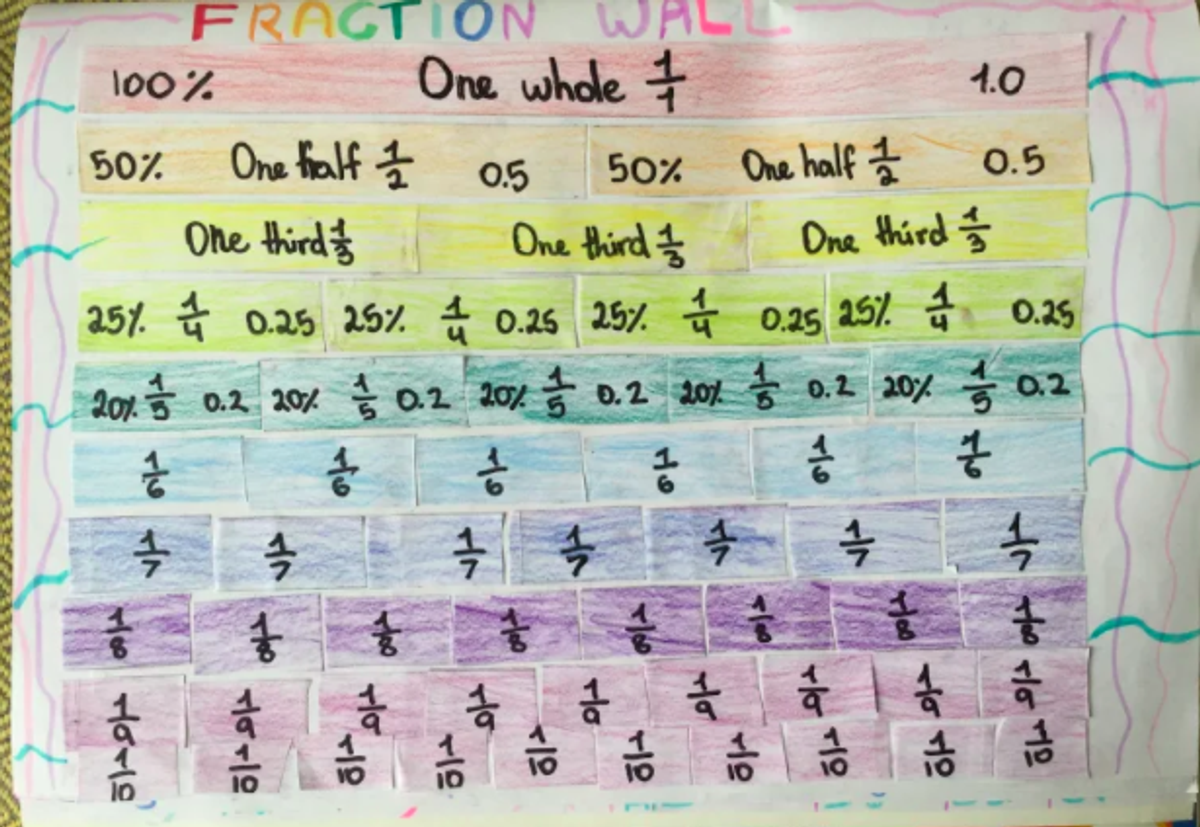 FRACTION WALL
100% One whole 1/1 1.0
50% One half 1/2 0.5 50% One half 1/2 0.5
One third 1/3 One third 1/3 One third 1/3
25% 1/4 0.25 25% 1/4 0.25 25% 1/4 0.25 25% 1/4 0.25
20% 1/5 0.2 20% 1/5 0.2 20% 1/5 0.2 20% 1/5 0.2 20% 1/5 0.2
1/6 1/6 1/6 1/6 1/6 1/6
1/7 1/7 1/7 1/7 1/7 1/7 1/7
1/8 1/8 1/8 1/8 1/8 1/8 1/8 1/8
1/9 1/9 1/9 1/9 1/9 1/9 1/9 1/9 1/9
1/10 1/10 1/10 1/10 1/10 1/10 1/10 1/10 1/10 1/10